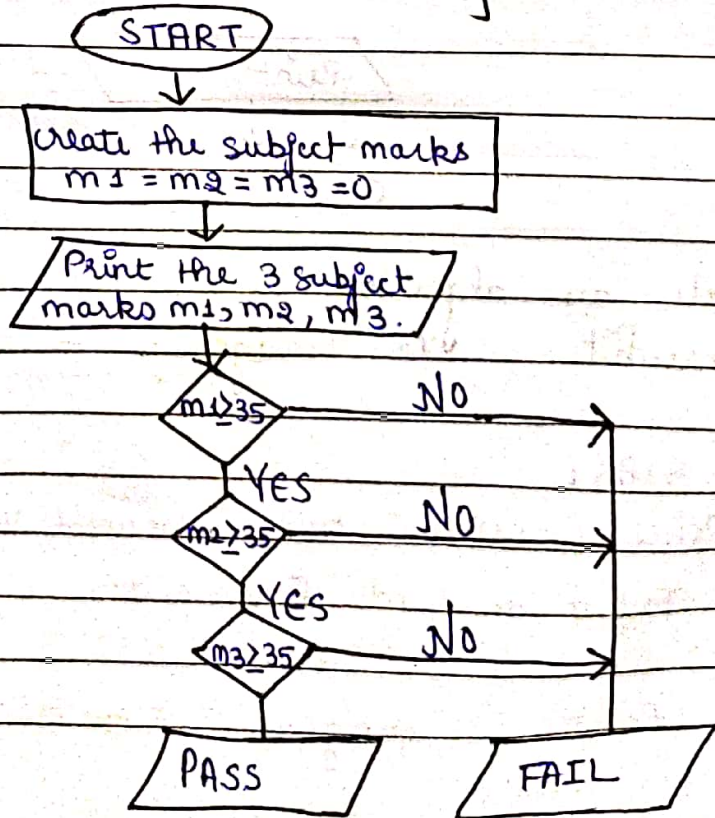 START
Create the subject marks
m1 = m2 = m3 = 0
Print the 3 subject
marks m1, m2, m3.
m1≥35
NO
YES
m2≥35
NO
YES
m3≥35
NO
PASS
FAIL